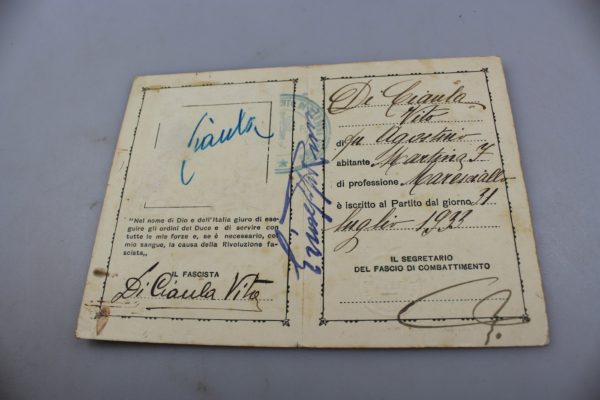 Cianla
"Nel nome di Dio e dell'Italia giuro di ese-
guire gli ordini del Duce e di servire con
tutte le mie forze e, se è necessario, col
mio sangue, la causa della Rivoluzione fa-
scista„
IL FASCISTA
Di Ciaula Vito
Di Ciaula
Vito
di fu Agostino
abitante Martina F
di professione Maresciallo
è iscritto al Partito dal giorno 31
luglio 1933
IL SEGRETARIO
DEL FASCIO DI COMBATTIMENTO